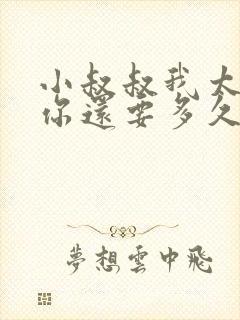 小叔叔我太
你還要多久
夢想雲中飛